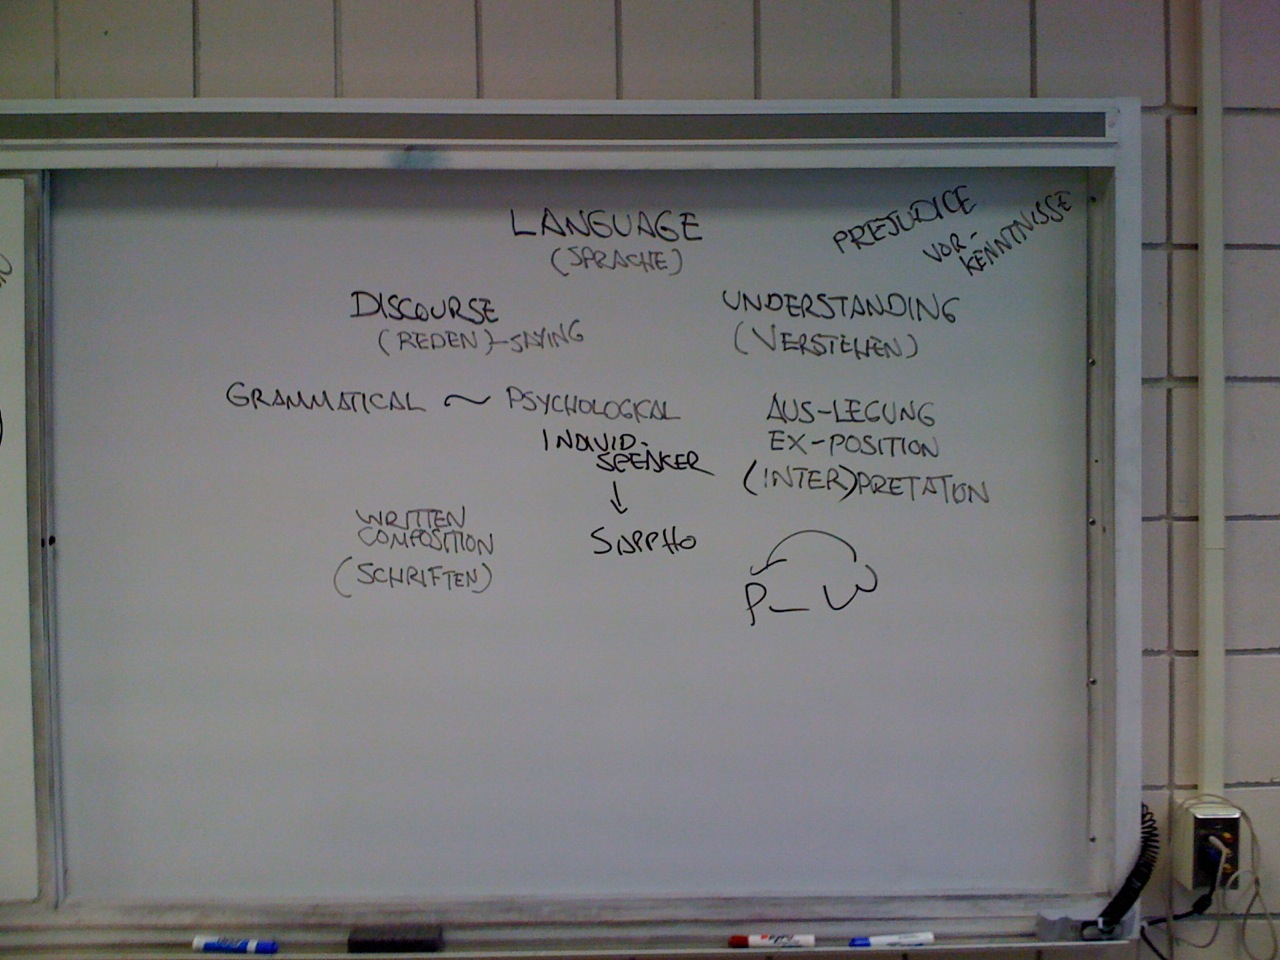 LANGUAGE
(SPRACHE)
PREJUDICE
VOR-
KENNTNISSE
DISCOURSE
(REDEN)-SAYING
UNDERSTANDING
(VERSTEHEN)
GRAMMATICAL ~ PSYCHOLOGICAL
INDIVID.
SPEAKER
↓
SAPPHO
AUS-LEGUNG
EX-POSITION
(INTER)PRETATION
WRITTEN
COMPOSITION
(SCHRIFTEN)
P_W